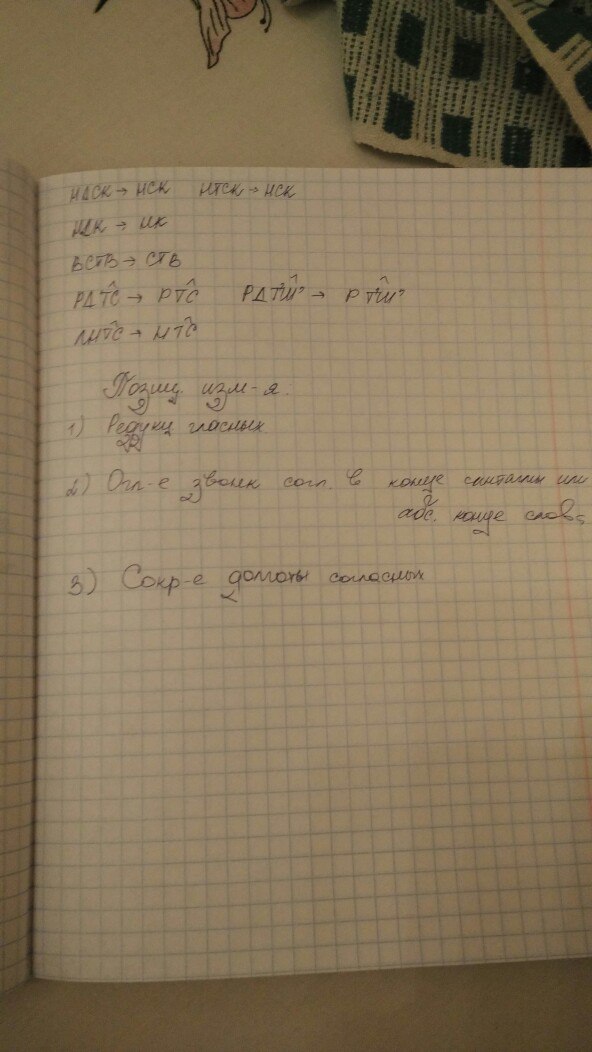 НДСК → НСК НТСК → НСК
НДК → НК
ВСТВ → СТВ
РДТ͡С → РТ͡С РДТ͡Ш' → РТ͡Ш'
ЛНТ͡С → НТ͡С
Позиц изм-я:
1) Редукц гласных
2) Огл-е звонк согл. в конце синтагмы или
абс. конце слова
3) Сокр-е долготы согласных